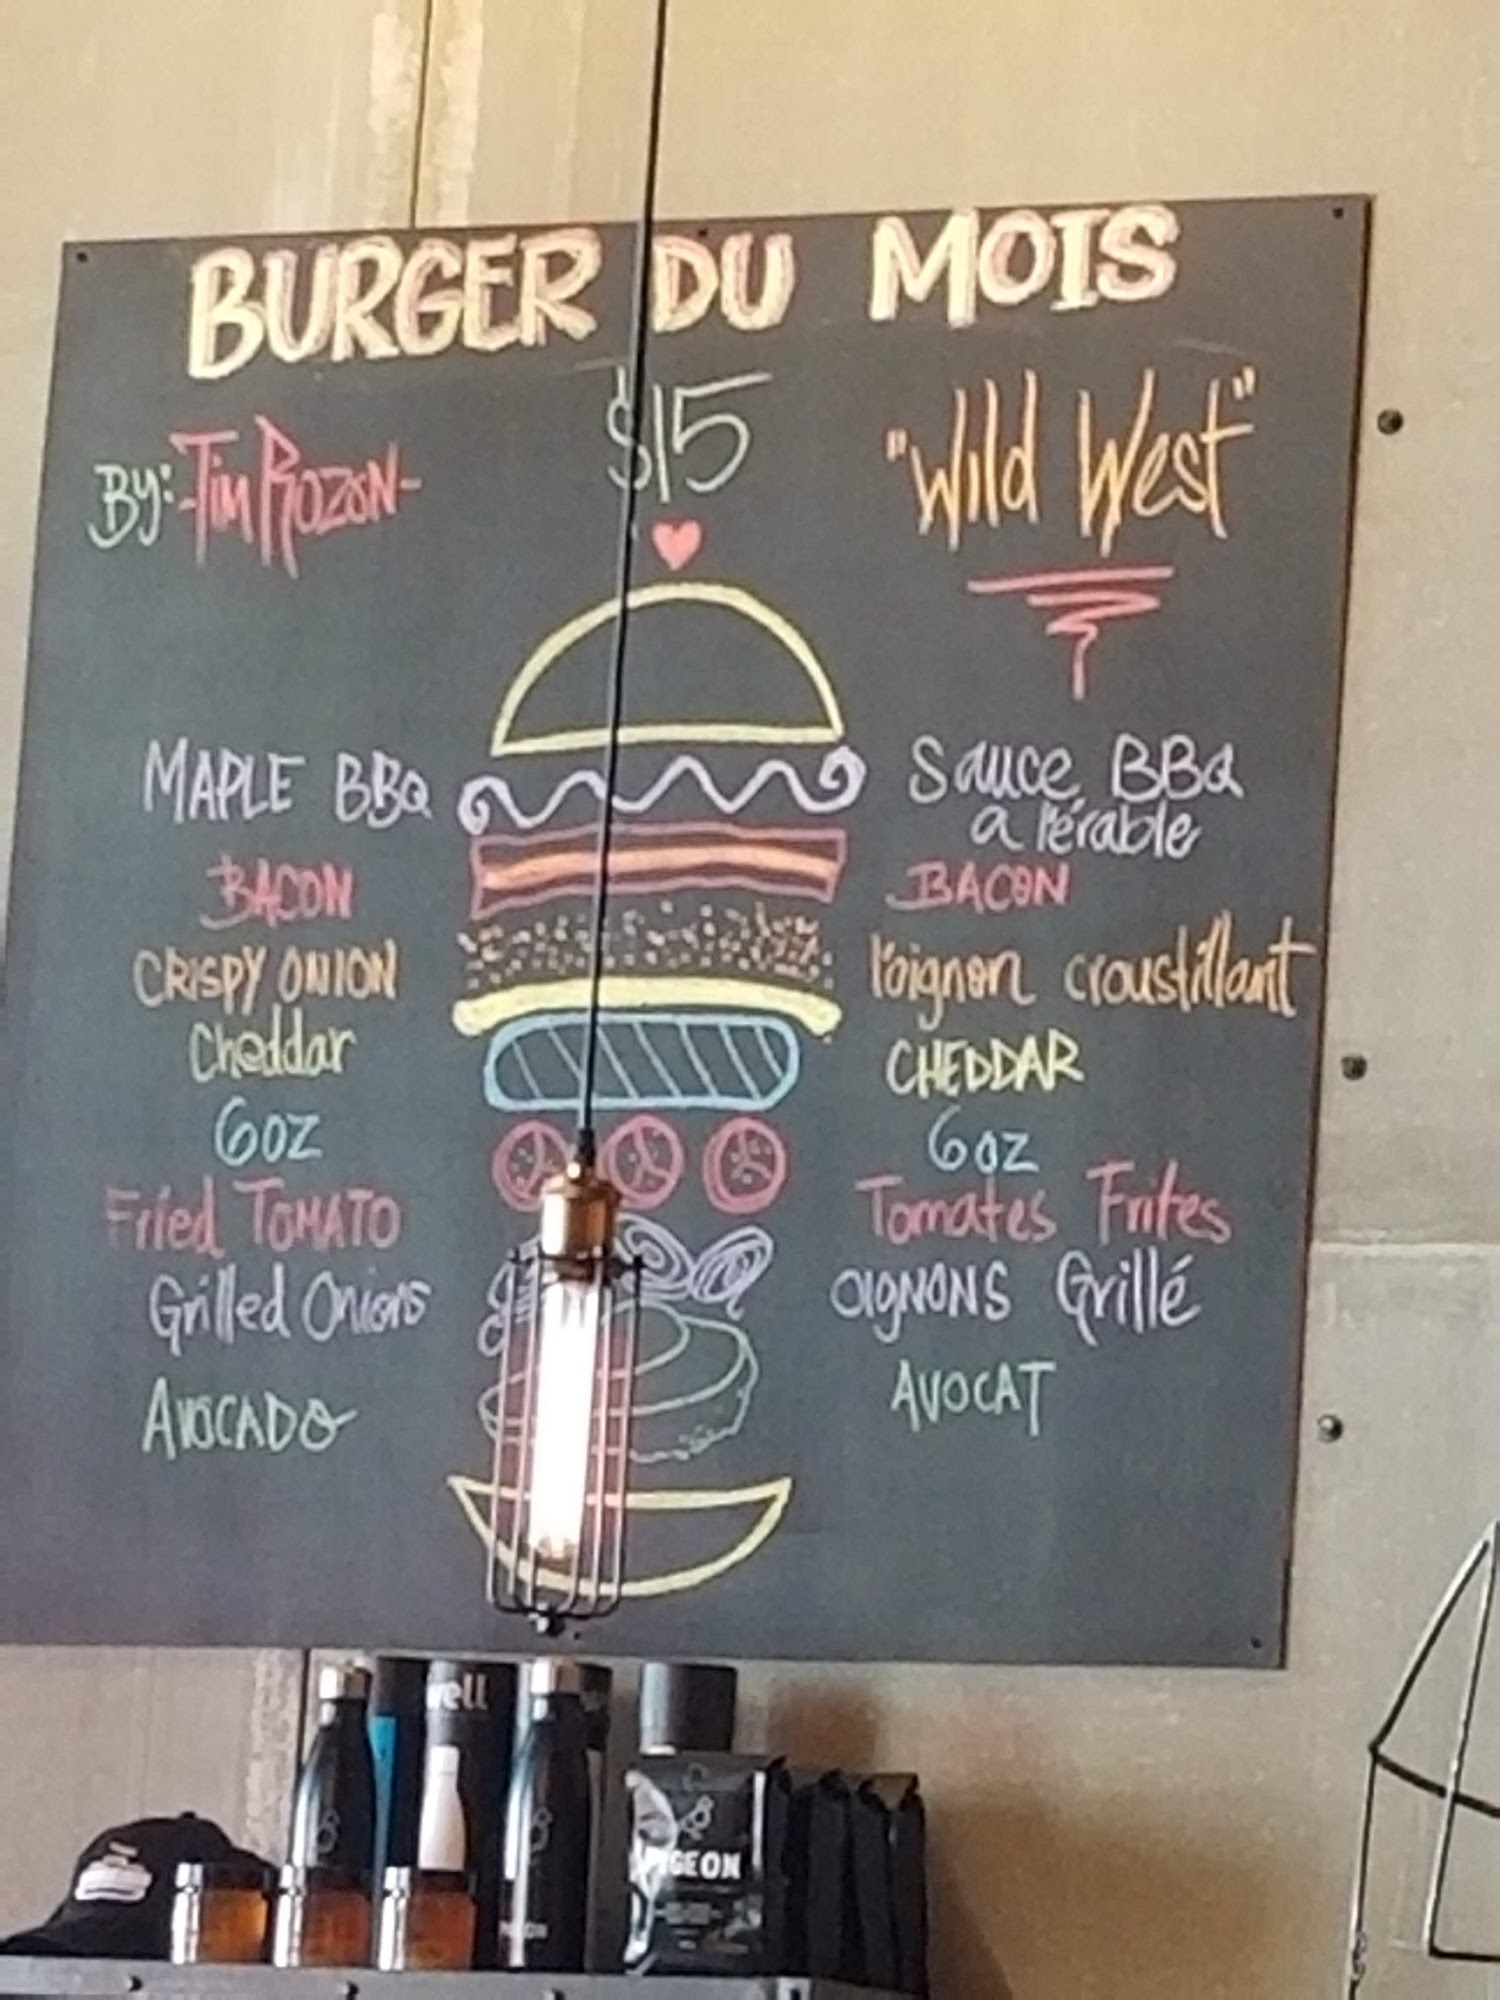 BURGER DU MOIS
$15
BY: -Tim ROZON-
"Wild West"
MAPLE BBQ
BACON
CRISPY ONION
Cheddar
6oz
Fried TOMATO
Grilled Onions
AVOCADO
Sauce BBQ
a l'érable
BACON
l'oignon croustillant
CHEDDAR
6oz
Tomates Frites
OIGNONS Grillé
AVOCAT
PIGEON